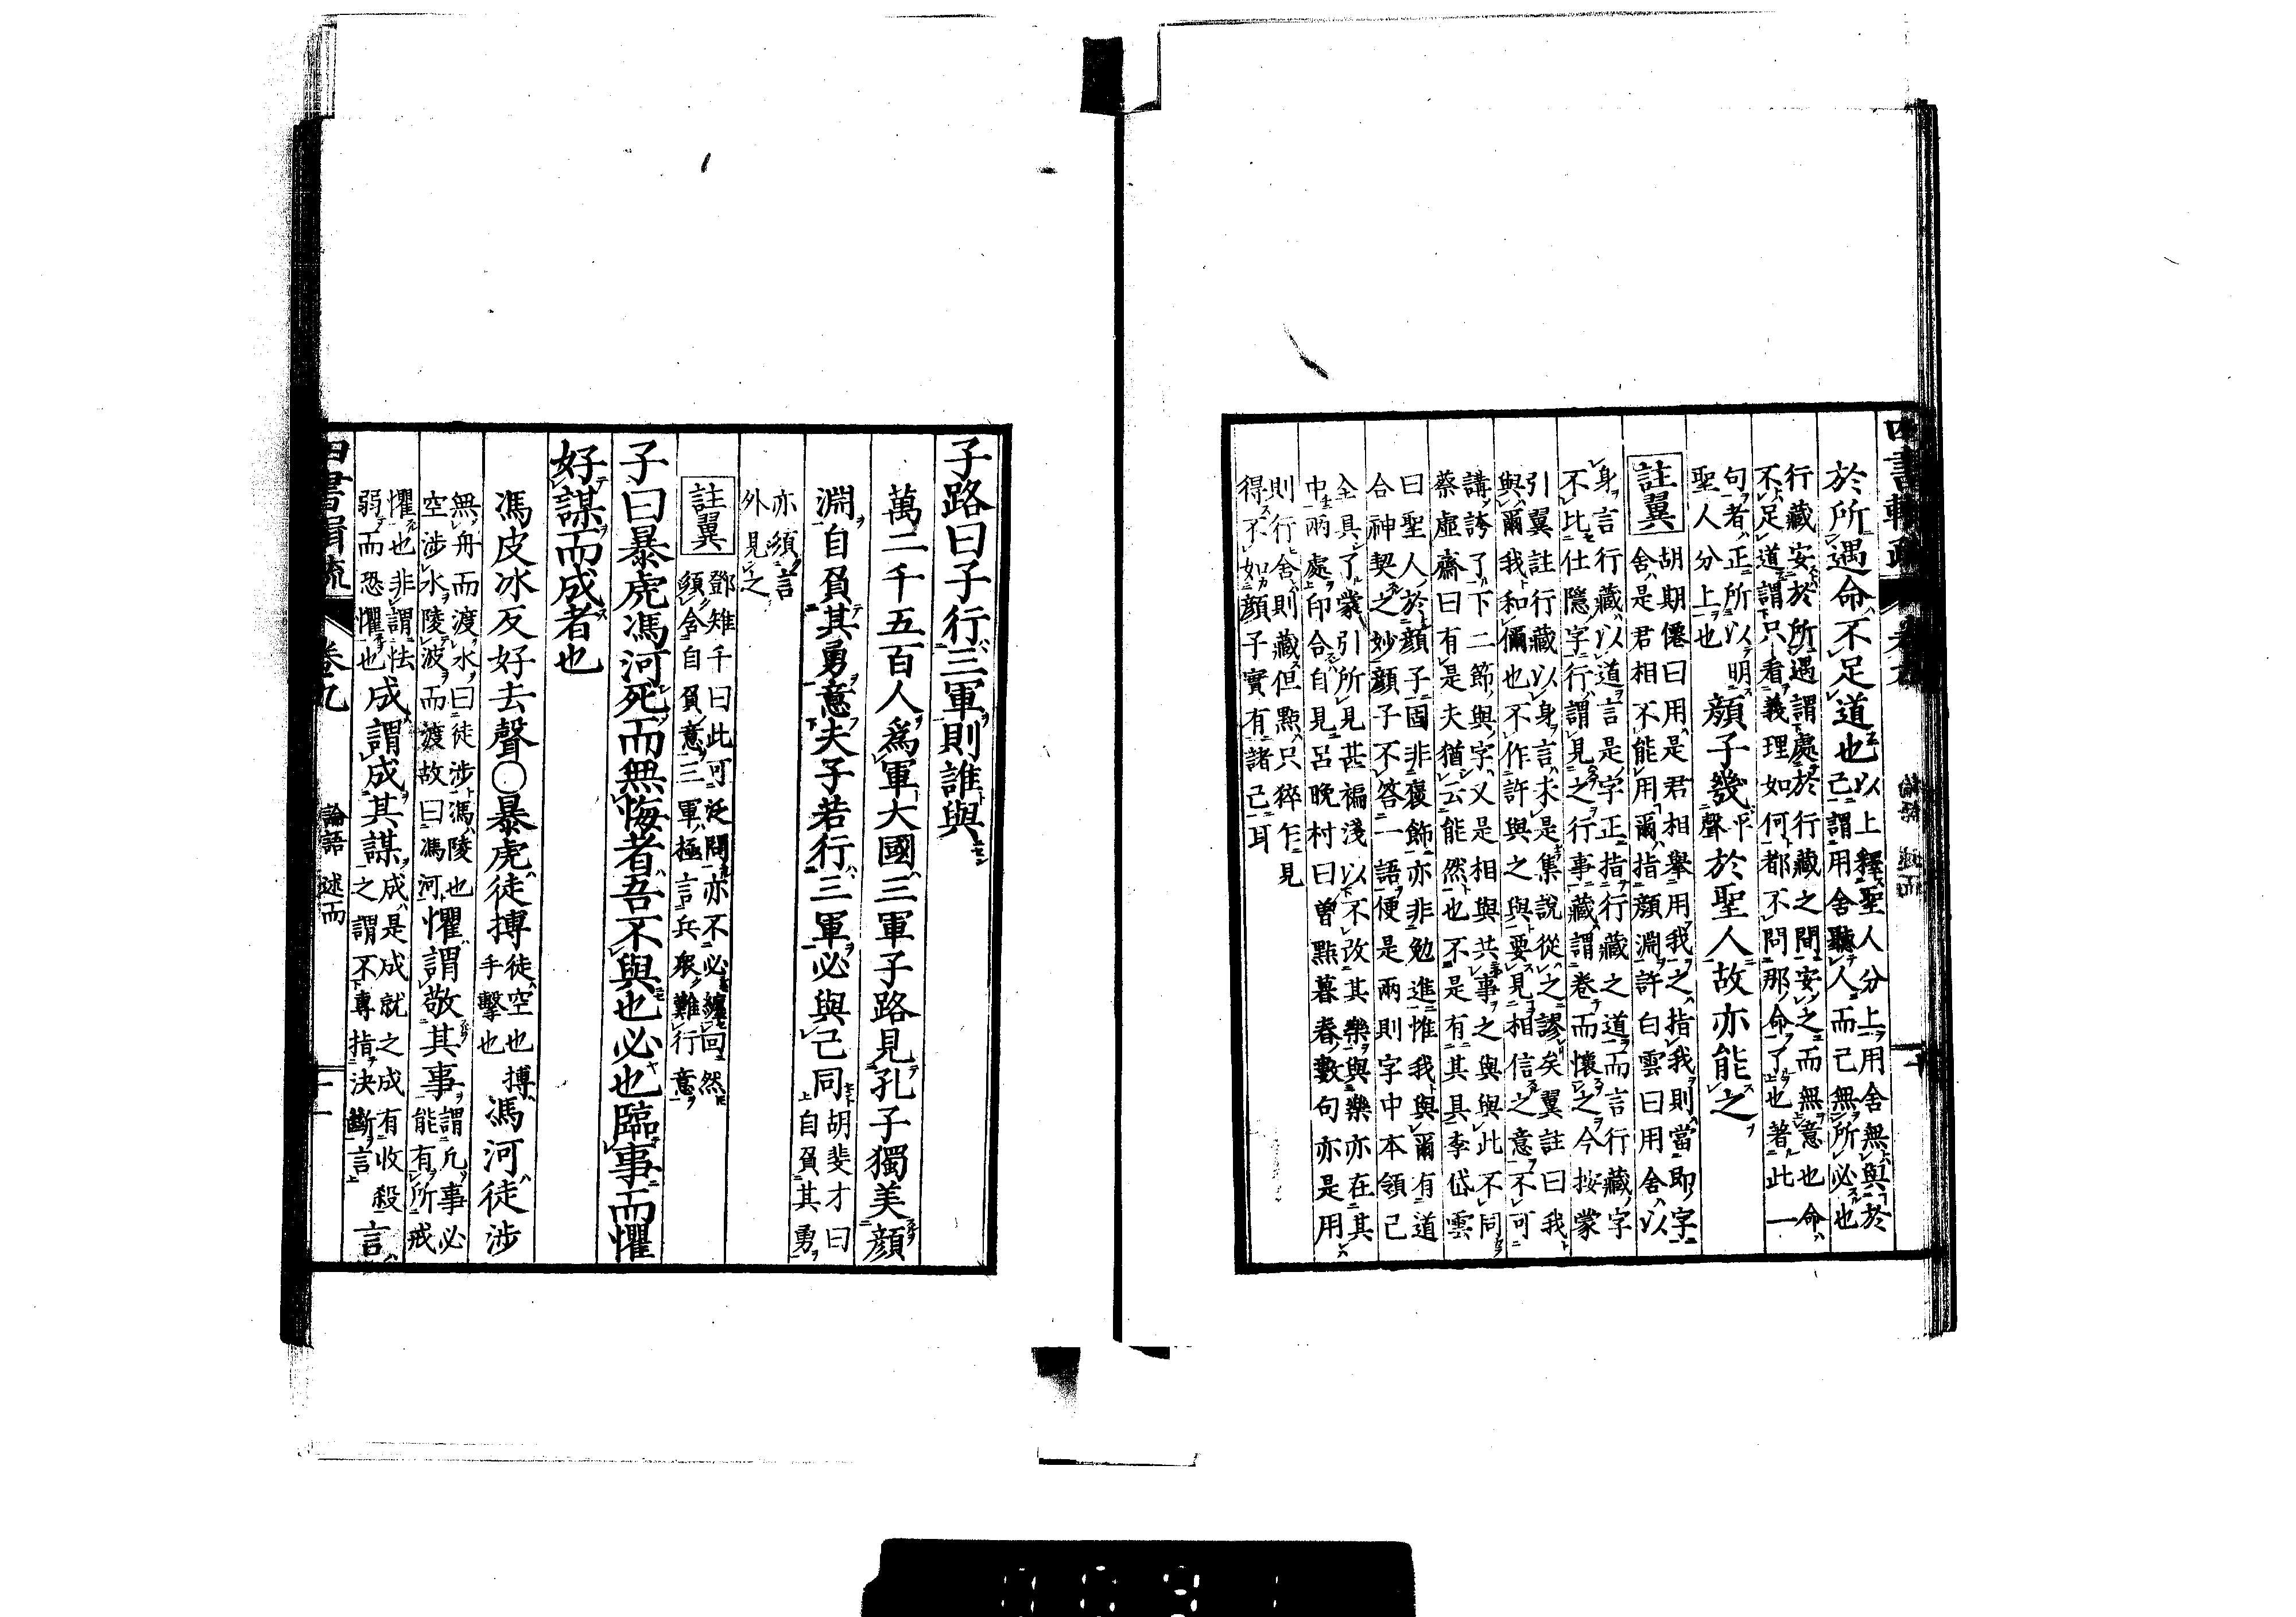 於所遇命不足道也以上釋聖人分上用舍無與於
己謂用舍聽人而己無所必也
行藏安於所遇謂處於行藏之間安之而無意也命
不足道謂只看義理如何都不問那命了也著此一
句者正所以明
聖人分上也
顏子幾平聲於聖人故亦能之
註翼
胡期僊曰用是君相舉用我之指我則當即字
舍是君相不能用爾指顏淵許白雲曰用舍以
身言行藏以道言是字正指行藏之道而言行藏字
不比仕隱字行謂見之行事藏謂卷而懷之今按蒙
引翼註行藏以身言未是集說從之謬矣翼註曰我
與爾我和儞也不作許與之與要見相信之意不可
講誇了下二節與字又是相與共事之與與此不同
蔡虛齋曰有是夫猶云能然也不是有其具李岱雲
曰聖人於顏子固非褒飾亦非勉進惟我與爾有道
合神契之妙顏子不答一語便是兩則字中本領己
全具了蒙引所見甚褊淺以不改其樂與樂亦在其
中兩處印合自見呂晚村曰曾點暮春數句亦是用
則行舍則藏但點只猝乍見
得不如顏子實有諸己耳
子路曰子行三軍則誰與
萬二千五百人爲軍大國三軍子路見孔子獨美顏
淵自負其勇意夫子若行三軍必與己同胡斐才曰
自負其勇
亦須言
外見之
註翼
鄧雉千曰此可泛問亦不必纏回然
須含自負意三軍極言兵衆難行意
子曰暴虎馮河死而無悔者吾不與也必也臨事而懼
好謀而成者也
馮皮冰反好去聲○暴虎徒搏徒空也搏
手擊也
馮河徒涉
無舟而渡水曰徒涉馮陵也
空涉水陵波而渡故曰馮河
懼謂敬其事謂凡事必
能有所戒
懼也非謂怯
弱而恐懼也
成謂成其謀成是成就之成有收殺
之謂不專指決斷言
言
四書輯疏
卷九
論語
述而